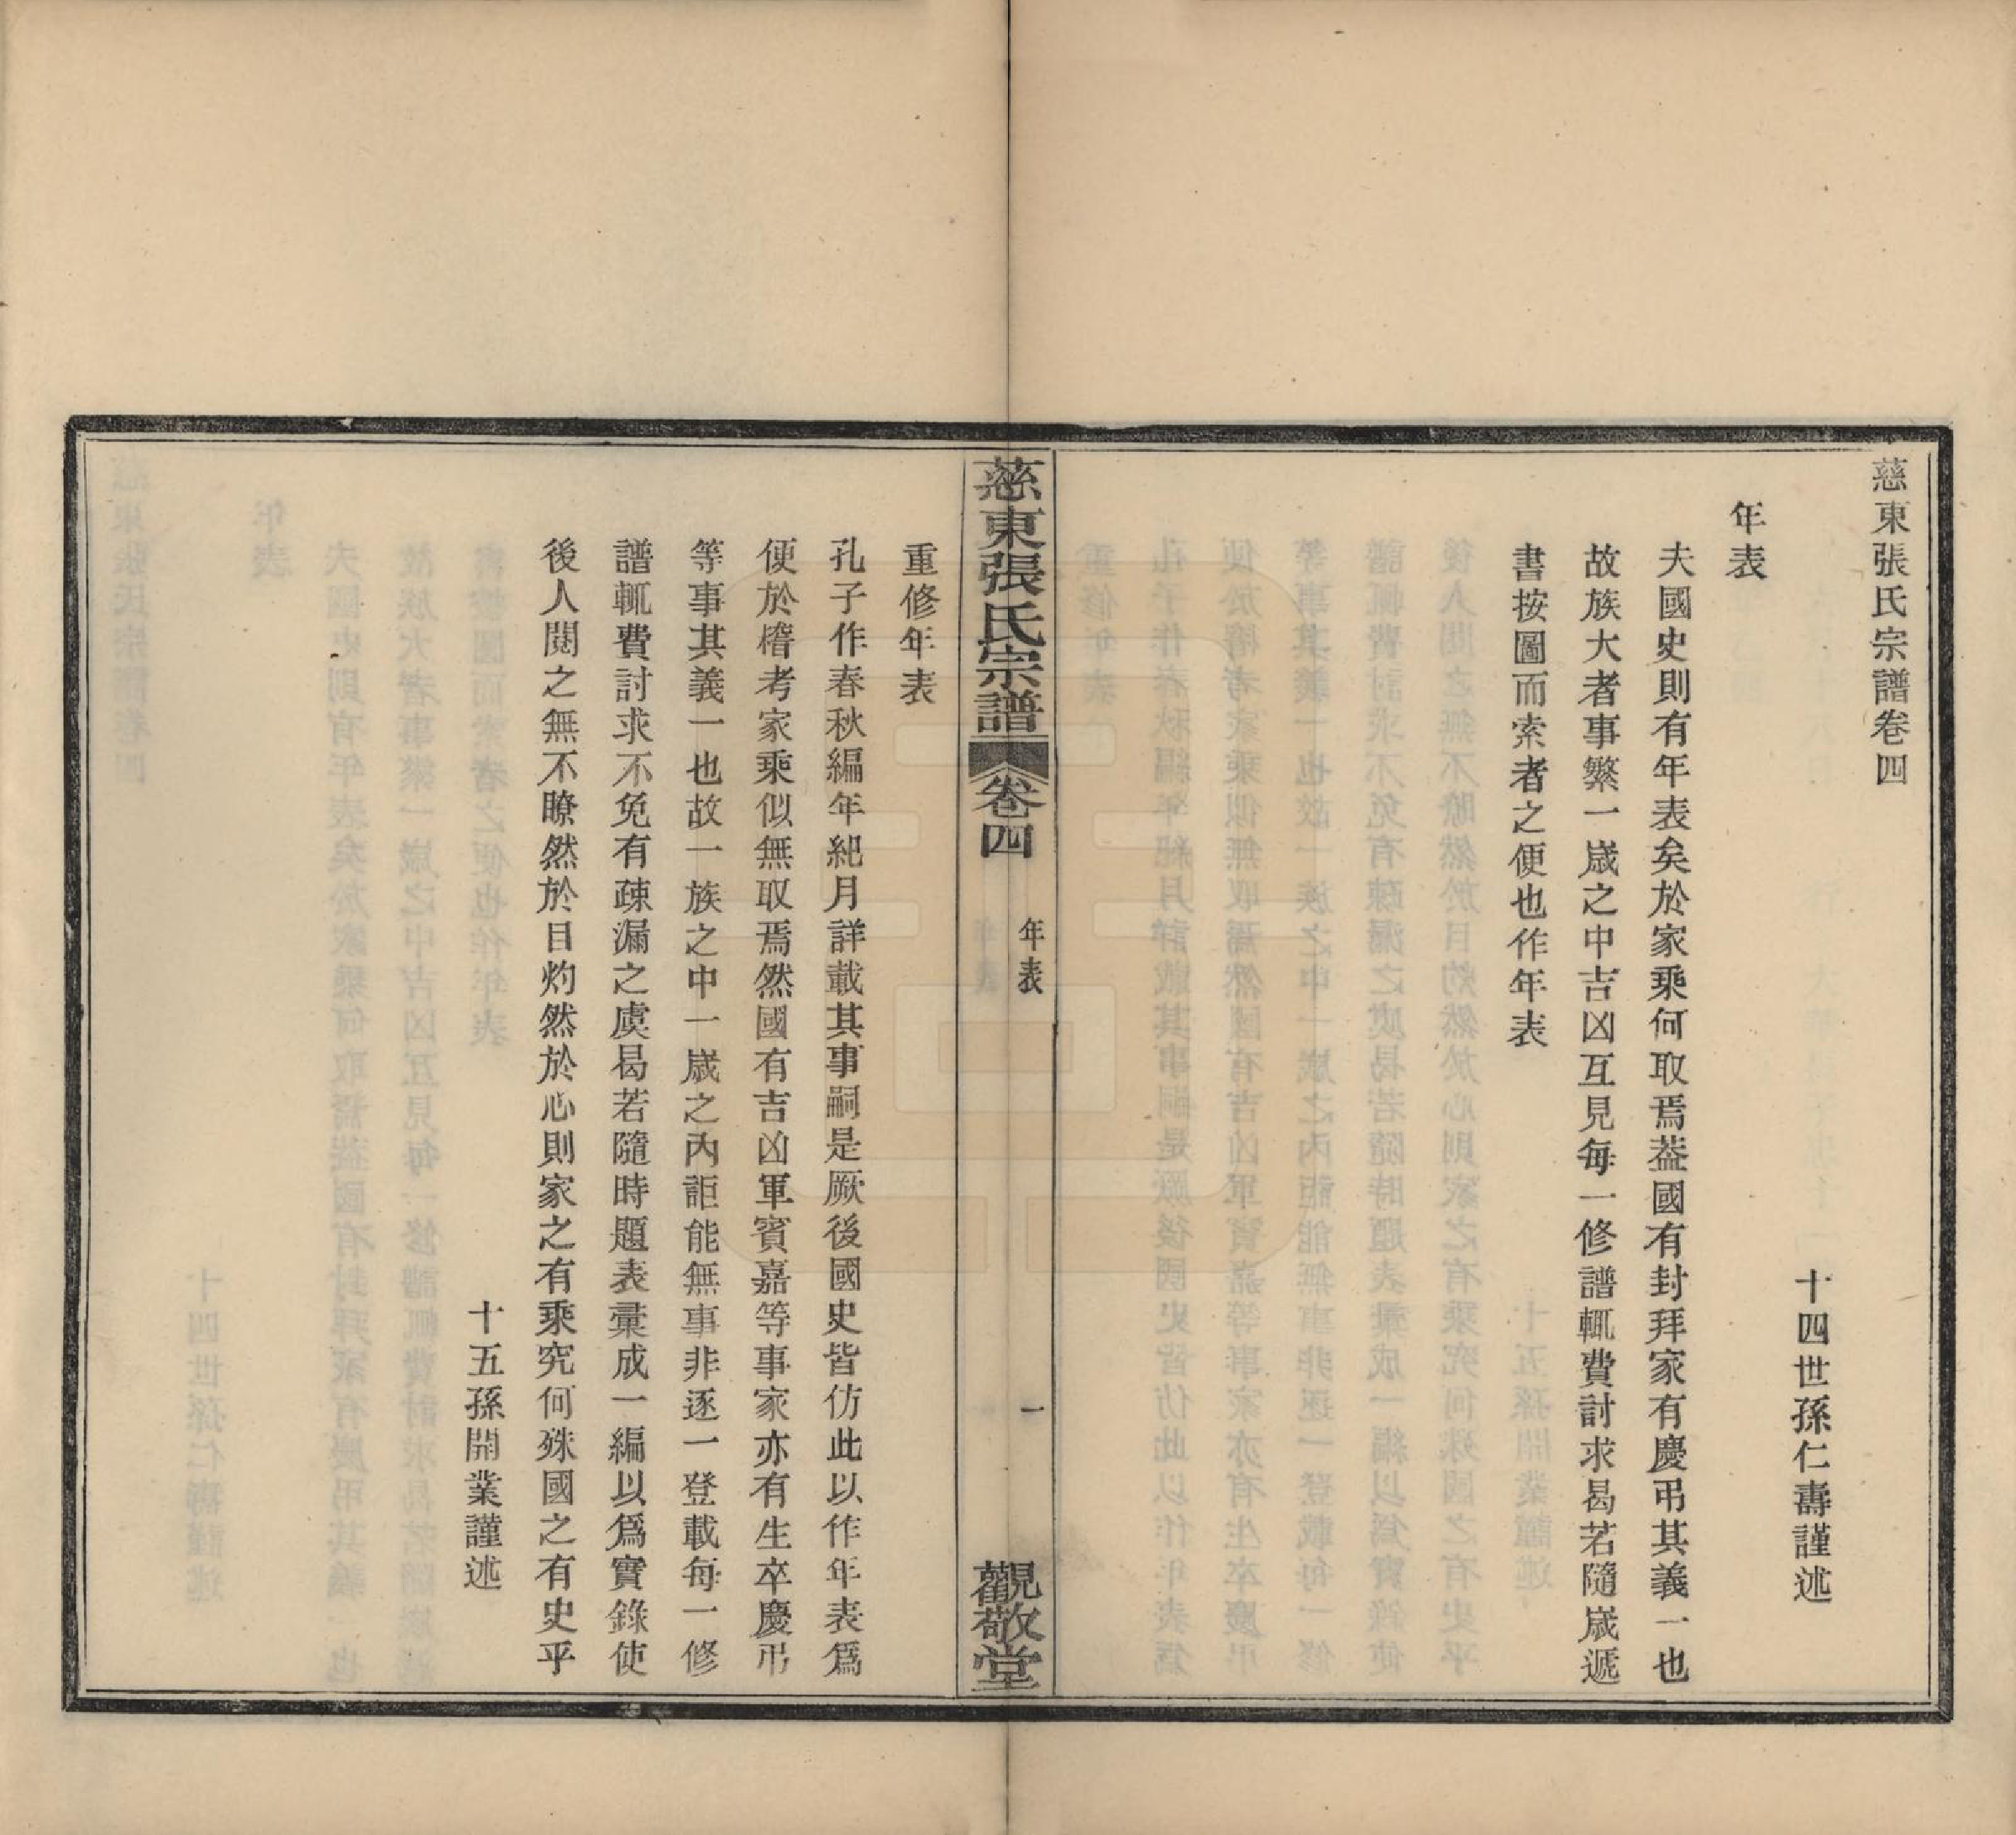 慈東張氏宗譜卷四
十四世孫仁壽謹述
年表
夫國史則有年表矣於家乘何取焉葢國有封拜家有慶弔其義一也
故族大者事繁一歲之中吉凶互見每一修譜輒費討求曷若隨歲遞
書按圖而索者之便也作年表
慈東張氏宗譜 卷四 年表 一 觀敬堂
重修年表
孔子作春秋編年紀月詳載其事嗣是厥後國史皆仿此以作年表爲
便於稽考家乘似無取焉然國有吉凶軍賓嘉等事家亦有生卒慶弔
等事其義一也故一族之中一歲之內詎能無事非逐一登載每一修
譜輒費討求不免有疎漏之虞曷若隨時題表彙成一編以爲實錄使
後人閱之無不瞭然於目灼然於心則家之有乘究何殊國之有史乎
十五孫開業謹述